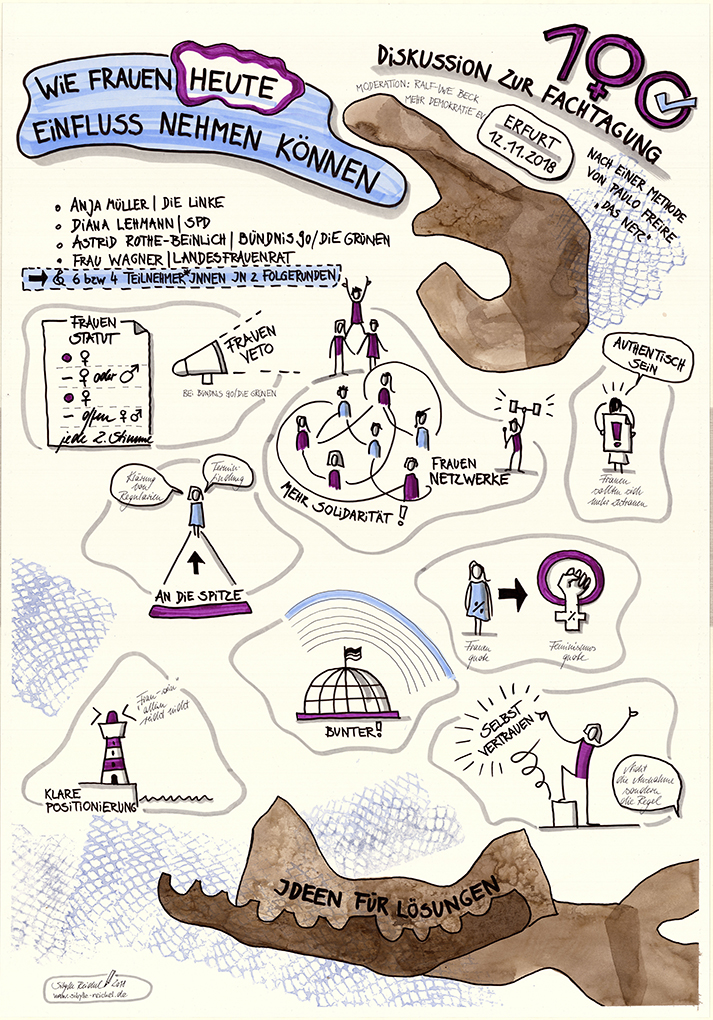 WIE FRAUEN HEUTE
EINFLUSS NEHMEN KÖNNEN
DISKUSSION ZUR FACHTAGUNG
100
MODERATION: RALF-UWE BECK
MEHR DEMOKRATIE EV
ERFURT
12.11.2018
NACH EINER METHODE
VON PAULO FREIRE
"DAS NETZ"
ANJA MÜLLER | DIE LINKE
DIANA LEHMANN | SPD
ASTRID ROTHE-BEINLICH | BÜNDNIS 90/DIE GRÜNEN
FRAU WAGNER | LANDESFRAUENRAT
& 6 bzw 4 TEILNEHMER*INNEN IN 2 FOLGERUNDEN
FRAUEN
STATUT
oder
offen
jede 2. Stimme
FRAUEN
VETO
BEI BÜNDNIS 90/DIE GRÜNEN
FRAUEN
NETZWERKE
MEHR SOLIDARITÄT!
AUTHENTISCH
SEIN
Frauen
sollten sich
mehr zutrauen
Klärung
von
Regularien
Termin-
findung
AN DIE SPITZE
%
Frauen
quote
%
Feminismus
quote
BUNTER!
"Frau-sein"
allein
reicht nicht
KLARE
POSITIONIERUNG
SELBST
VERTRAUEN
Nicht
die Ausnahme
sondern
die Regel
IDEEN FÜR LÖSUNGEN
Sibylle Reichel 2018
www.sibylle-reichel.de